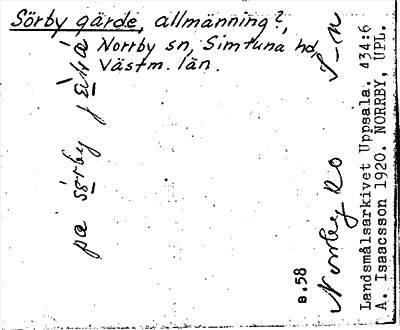 Sörby gärde, allmänning?,
Norrby sn, Simtuna hd,
Västm. län.
på sörby
Norrby
B.58
Landsmålsarkivet Uppsala. 434:6
A. Isaacsson 1920. NORRBY, UPL.